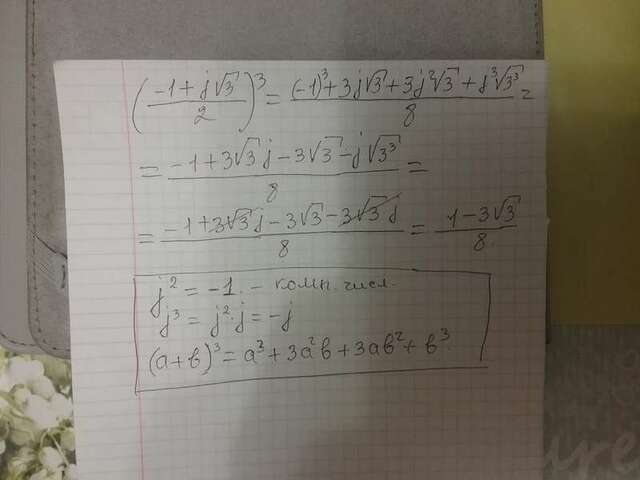 (\frac{-1+j\sqrt{3}}{2})^3 = \frac{(-1)^3+3j\sqrt{3}+3j^2\sqrt{3}+j^3\sqrt{3^3}}{8} =
= \frac{-1+3\sqrt{3}j-3\sqrt{3}-j\sqrt{3^3}}{8} =
= \frac{-1+3\sqrt{3}j-3\sqrt{3}-3\sqrt{3}j}{8} = \frac{1-3\sqrt{3}}{8}
j^2 = -1. - комп. числ.
j^3 = j^2·j = -j
(a+b)^3 = a^3+3a^2b+3ab^2+b^3